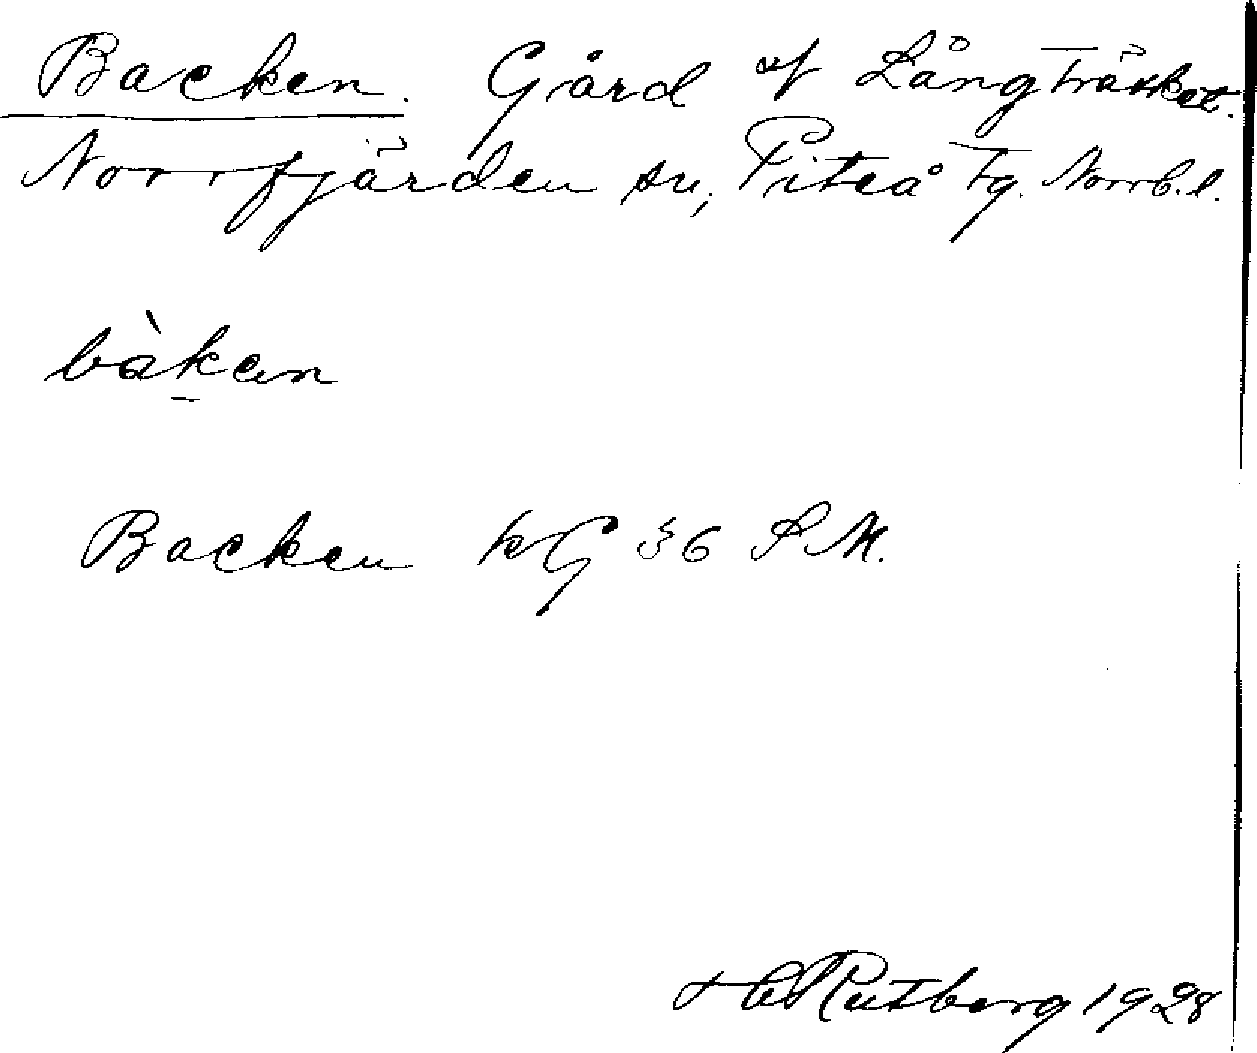 Backen. Gård af Långträsket.
Norrfjärden sn, Piteå tg. Norrb. l.
bàken
Backen kG 36 S.M.
Rutberg 1928